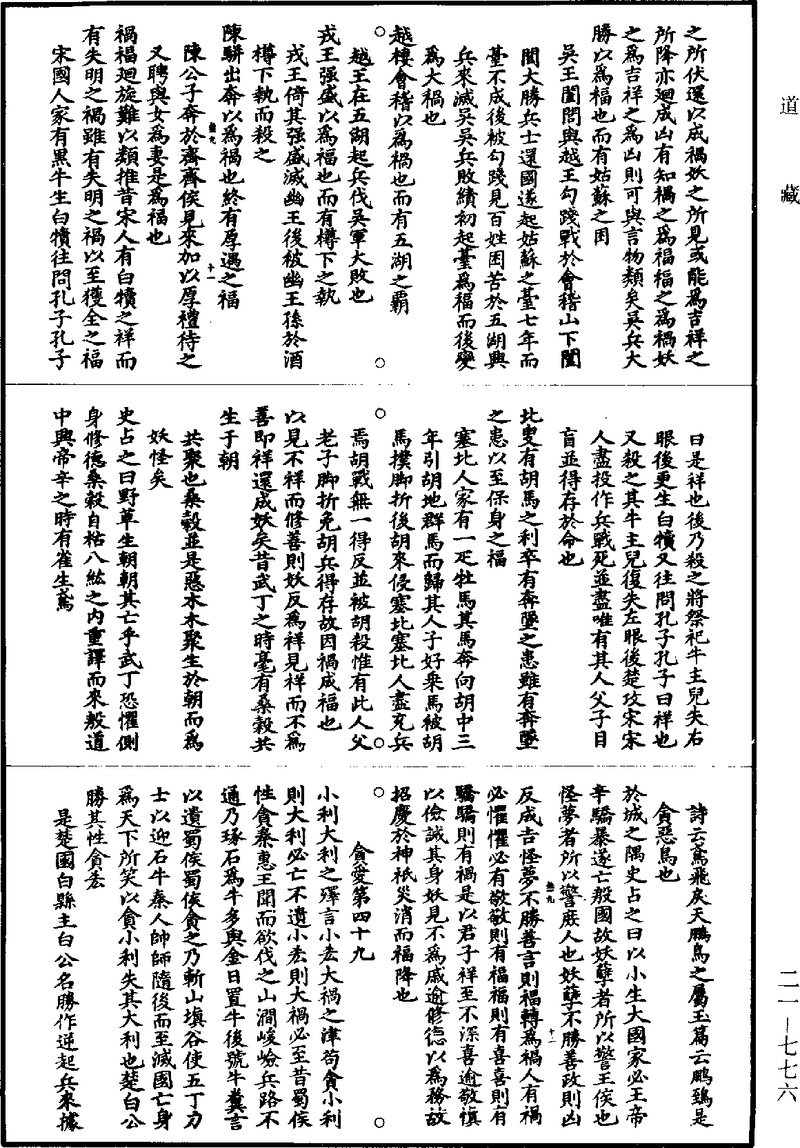 道藏
之所伏還以成禍妖之所見或能爲吉祥之
所降亦迴成凶有知禍之爲福福之爲禍妖
之爲吉祥之爲凶則可與言物類矣吳兵大
勝以爲福也而有姑蘇之困
吳王闔閭與越王勾踐戰於會稽山下闔
閭大勝兵士還國遂起姑蘇之臺七年而
臺不成後被勾踐見百姓困苦於五湖興
兵來滅吳吳兵敗績初起臺爲福而後變
爲大禍也
越棲會稽以爲禍也而有五湖之霸
越王在五湖起兵伐吳軍大敗也
戎王强盛以爲福也而有樽下之執
戎王倚其强盛滅幽王後被幽王孫於酒
樽下執而殺之
陳駢出奔以爲禍也終有厚遇之福
陳公子奔於齊齊侯見來加以厚禮待之
又聘與女爲妻是爲福也
禍福迴旋難以類推昔宋人有白犢之祥而
有失明之禍雖有失明之禍以至獲全之福
宋國人家有黑牛生白犢往問孔子孔子
曰是祥也後乃殺之將祭祀牛主兒失右
眼後更生白犢又往問孔子孔子曰祥也
又殺之其牛主兒復失左眼後楚攻宋宋
人盡投作兵戰死並盡唯有其人父子目
盲並得存於命也
北叟有胡馬之利卒有奔墜之患雖有奔墜
之患以至保身之福
塞北人家有一疋牡馬其馬奔向胡中三
年引胡地群馬而歸其人子好乘馬被胡
馬撲脚折後胡來侵塞北塞北人盡充兵
焉胡戰無一得反並被胡殺惟有此人父
老子脚折免胡兵得存故因禍成福也
以見不祥而修善則妖反爲祥見祥而不爲
善即祥還成妖矣昔武丁之時亳有桑穀共
生于朝
共聚也桑穀並是惡木木聚生於朝而爲
妖怪矣
史占之曰野草生朝朝其亡乎武丁恐懼側
身修德桑穀自枯八紘之内重譯而來殷道
中興帝辛之時有雀生鳶
詩云鳶飛戾天鵬鳥之屬玉篇云鵰鵄是
貪惡鳥也
於城之隅史占之曰以小生大國家必王帝
辛驕暴遂亡殷國故妖孽者所以警王侯也
怪夢者所以警庶人也妖孽不勝善政則凶
反成吉怪夢不勝善言則福轉爲禍人有禍
必懼懼必有敬敬則有福福則有喜喜則有
驕驕則有禍是以君子祥至不深喜逾敬慎
以儉誠其身妖見不爲戚逾修德以爲務故
招慶於神祇災消而福降也
貪愛第四十九
小利大利之殫言小悋大禍之津苟貪小利
則大利必亡不遺小悋則大禍必至昔蜀侯
性貪秦惠王聞而欲伐之山澗峻嶮兵路不
通乃琢石爲牛多與金日置牛後號牛糞言
以遺蜀侯蜀侯貪之乃斬山填谷使五丁力
士以迎石牛秦人帥師隨後而至滅國亡身
爲天下所笑以貪小利失其大利也楚白公
勝其性貪悋
是楚國白縣主白公名勝作逆起兵來據
二一—七七六